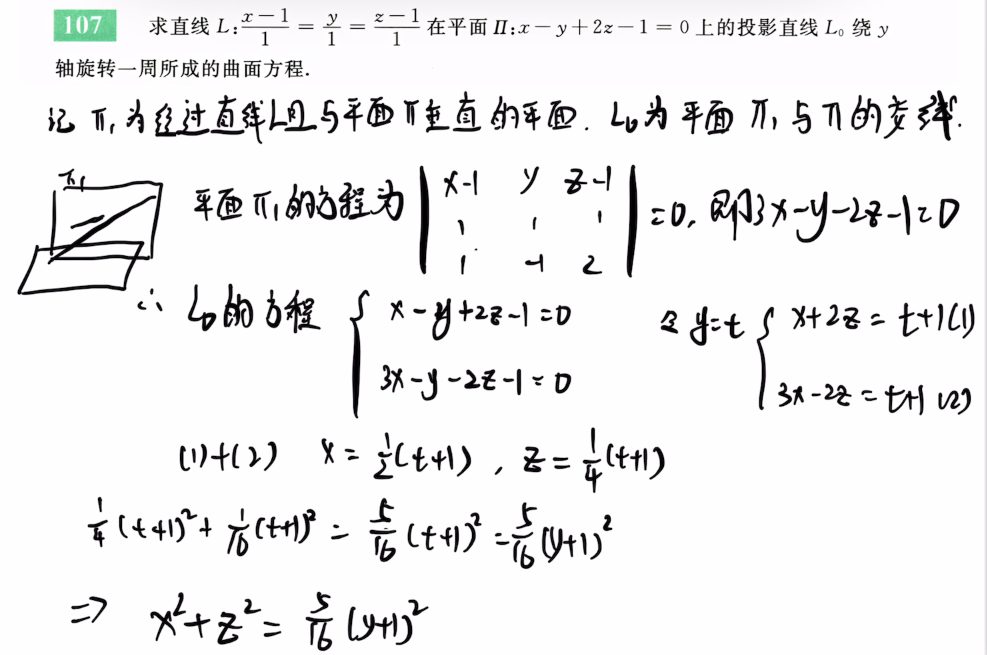 107 求直线 L: (x-1)/1 = y/1 = (z-1)/1 在平面 Π: x-y+2z-1=0 上的投影直线 L₀ 绕 y
轴旋转一周所成的曲面方程.
记 π₁ 为经过直线L且与平面π垂直的平面. L₀为平面 π₁ 与π的交线.
π₁
平面π₁的方程为 | x-1 y z-1 | =0, 即3x-y-2z-1=0
1 1 1
1 -1 2
∴ L₀的方程 { x-y+2z-1=0 令 y=t { x+2z=t+1(1)
3x-y-2z-1=0 3x-2z=t+1 (2)
(1)+(2) x=1/2(t+1), z=1/4(t+1)
1/4(t+1)²+1/16(t+1)²=5/16(t+1)²=5/16(y+1)²
⇒ x²+z²=5/16(y+1)²